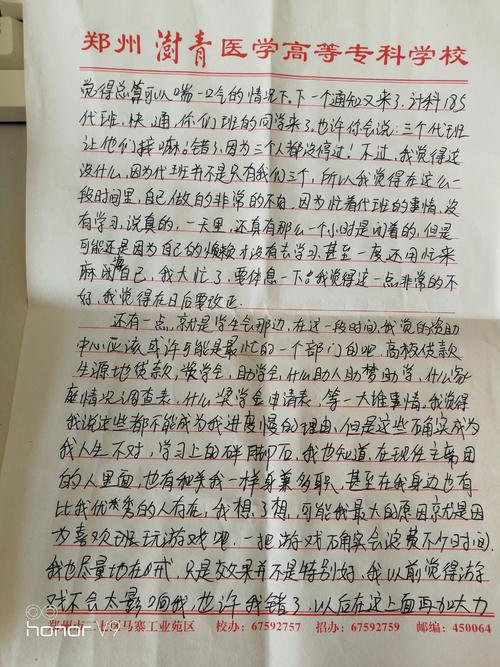 郑州澍青医学高等专科学校
觉得总算可以喘一口气的情况下。下一个通知又来了，计科185
代班，快，通，你们班的同学来了。也许你会说：三个代班
让他们接嘛。错！因为三个人都没停过！不过，我觉得这
没什么，因为代班书不是只有我们三个，所以我觉得在这么一
段时间里，自己做的非常的不好，因为忙着代班的事情，没
有学习，说真的，一天里，还真有那么一个小时是闲着的，但是
可能还是因为自己的懒散才没有去学习，甚至一度还用忙来
麻痹自己，我太忙了，要休息一下。我觉得这一点非常的不
好，我觉得在日后要改正.
还有一点，就是学生气那边，在这一段时间，我觉的资助
中心应该或许可能是最忙的一个部门的吧，高校贷款
生源地贷款，奖学金，助学金，什么助人助梦助学，什么家
庭情况调查表，什么奖学金申请表，等一大堆事情，我觉得
我说这些都不能成为我进度慢的理由，但是这些石角实成为
我人生不对，学习上的绊脚石，我也知道，在现任主席团
的人里面，也有和我一样身兼多职，甚至在我身边也有
比我优秀的人存在，我想了想，可能我最大的原因就是因
为喜欢班玩游戏吧，一把游戏石角实会浪费不少时间，
我也尽量地在戒，只是效果并不是特别好，我以前觉得游
戏不会太影响我，也许我错了，以后在这上面再加大力
郑州市二七区马寨工业苑区 校办：67592757 招办：67592759 邮编：450064
honor V9